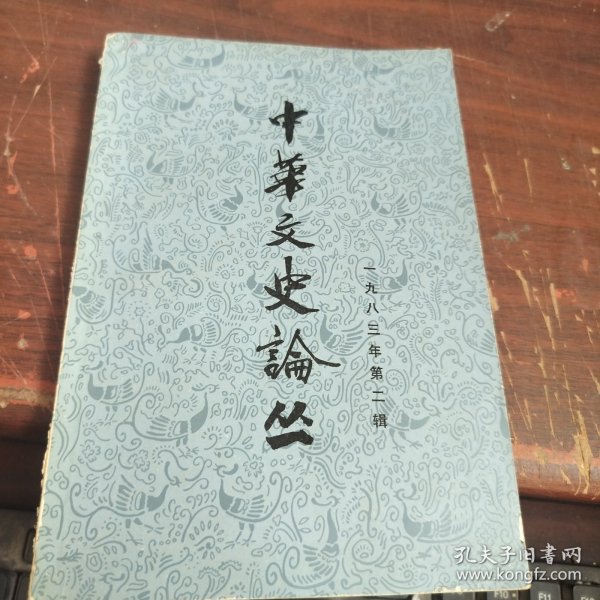 中華文史論丛
一九八三年第二辑
孔夫子旧書网
www.kongfz.com
F10
F11